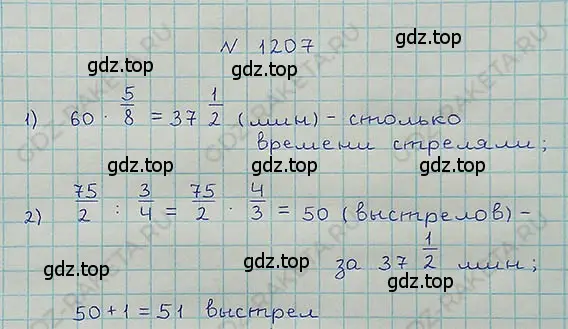 N 1207
gdz.top gdz.top
1) 60 · 5/8 = 37 1/2 (мин) - столько
времени стреляли;
gdz.top gdz.top
2) 75/2 : 3/4 = 75/2 · 4/3 = 50 (выстрелов) -
gdz.top gdz.top
за 37 1/2 мин;
50 + 1 = 51 выстрел
gdz.top gdz.top
GDZ-RAKETA.RU